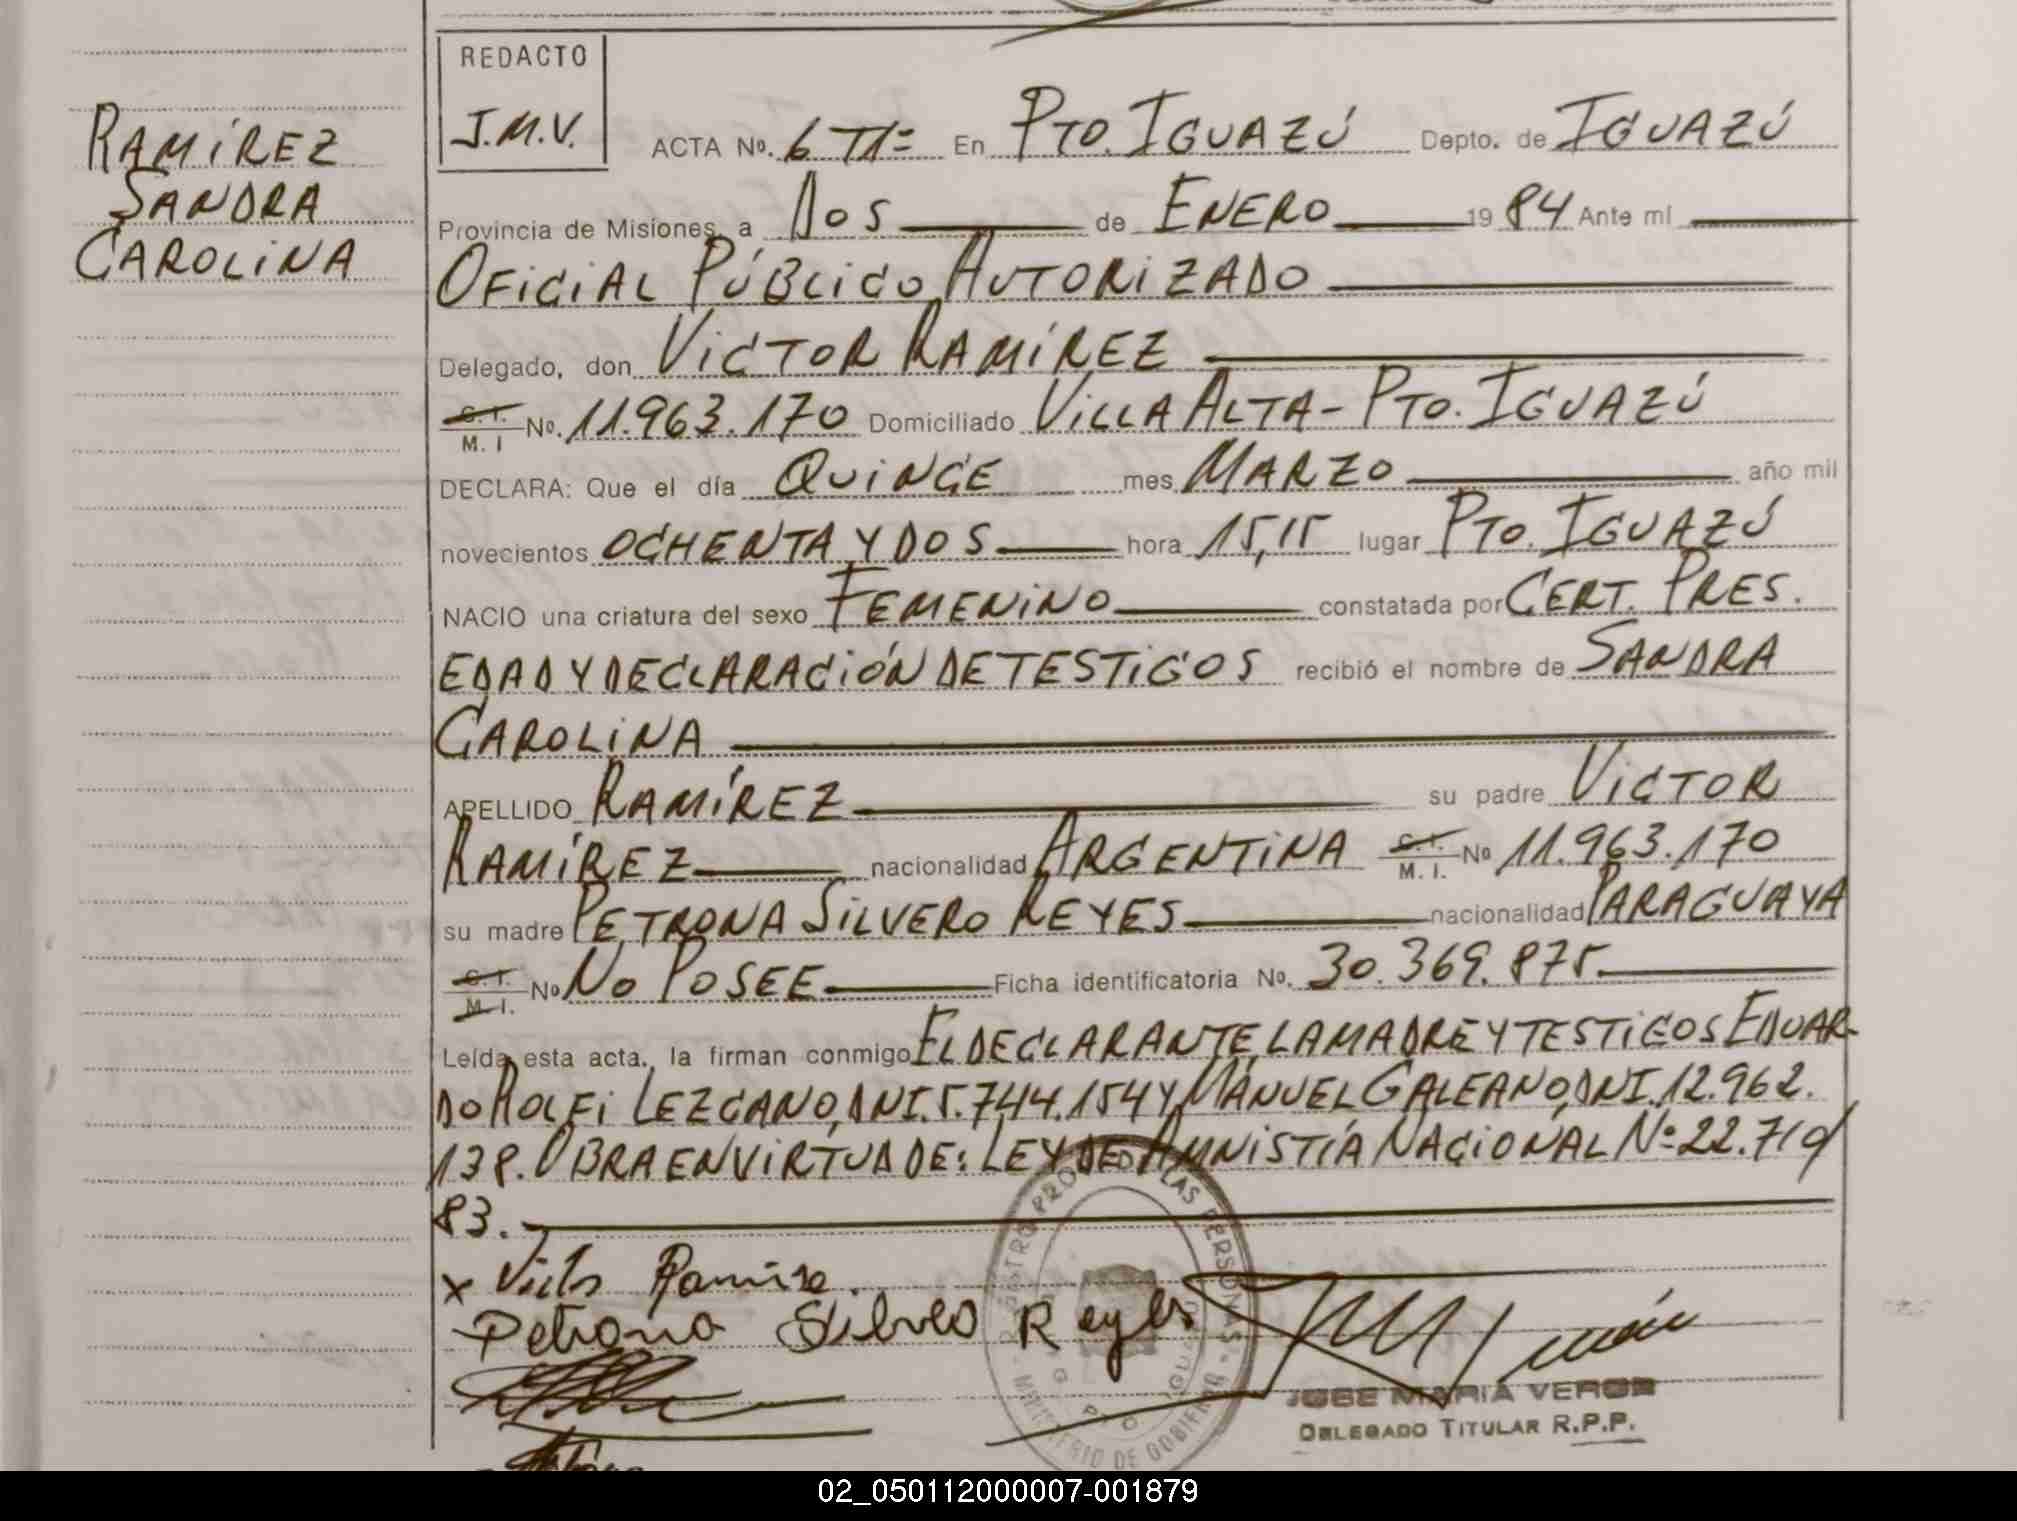 REDACTO
J.M.V.
RAMÍREZ
SANDRA
CAROLINA
ACTA Nº. 6 T1= En PTO. IGUAZÚ Depto. de IGUAZÚ
Provincia de Misiones, a DOS de ENERO 1984 Ante mí
OFICIAL PÚBLICO AUTORIZADO
Delegado, don VICTOR RAMÍREZ
C.I. M. I Nº. 11.963.170 Domiciliado VILLA ALTA - PTO. IGUAZÚ
DECLARA: Que el día QUINCE mes MARZO año mil
novecientos OCHENTA Y DOS hora 15,15 lugar PTO. IGUAZÚ
NACIO una criatura del sexo FEMENINO constatada por CERT. PRES.
EDAD Y DECLARACIÓN DE TESTIGOS recibió el nombre de SANDRA
CAROLINA
APELLIDO RAMÍREZ su padre VICTOR
RAMÍREZ nacionalidad ARGENTINA C.I. M. I. Nº 11.963.170
su madre PETRONA SILVERO REYES nacionalidad PARAGUAYA
C.I. M. I. Nº NO POSEE Ficha identificatoria Nº. 30.369.875.
Leída esta acta, la firman conmigo EL DECLARANTE, LA MADRE Y TESTIGOS EDUAR-
DO ROLFI LEZCANO, DNI. 5.744.154 Y MANUEL GALEANO, DNI. 12.962.
138. OBRA EN VIRTUD DE: LEY DE AMNISTÍA NACIONAL Nº 22.710/
83.
x Victor Ramirez
Petrona Silvero Reyes
REGISTRO PROV. DE LAS PERSONAS
MINISTERIO DE GOBIERNO
PTO. IGUAZU
JOSE MARIA VERON
DELEGADO TITULAR R.P.P.
02_050112000007-001879